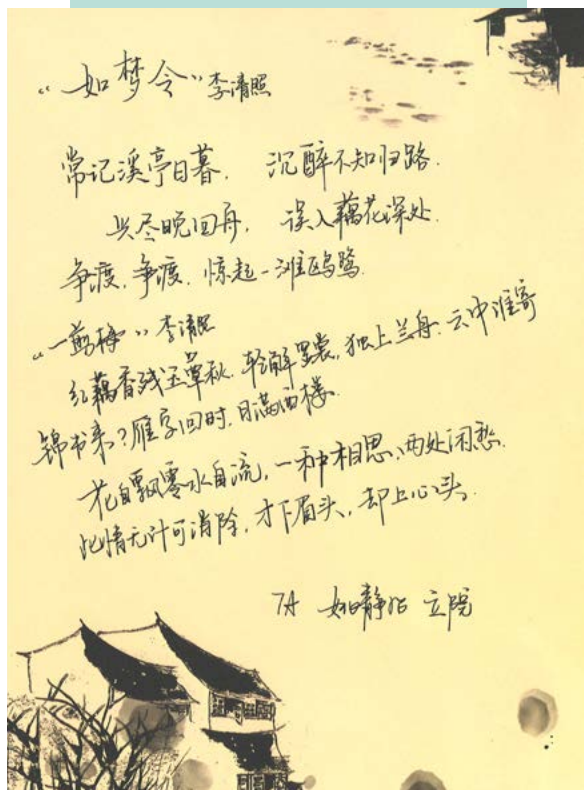 “如梦令” 李清照
常记溪亭日暮. 沉醉不知归路.
兴尽晚回舟, 误入藕花深处.
争渡, 争渡. 惊起一滩鸥鹭.
“一剪梅” 李清照
红藕香残玉簟秋. 轻解罗裳, 独上兰舟. 云中谁寄
锦书来? 雁字回时, 月满西楼.
花自飘零水自流, 一种相思, 两处闲愁.
此情无计可消除, 才下眉头, 却上心头.
7A 静 立院